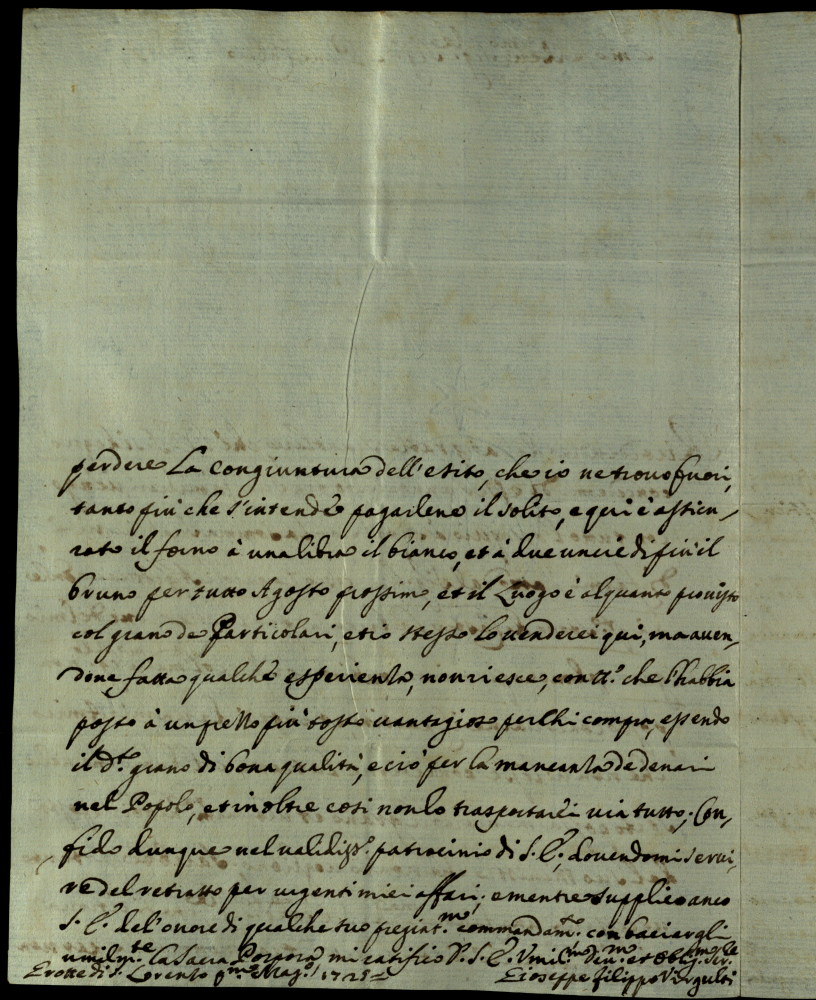 perdere la congiuntura dell'esito, che io ne trovo fuori,
tanto più che s'intende pagarlene il solito, e qui è assicu,
rato il forno à una libra il bianco, et à due uncie di più il
bruno per tutto Agosto prossimo, et il Luogo è alquanto provisto
col grano de Particolari, et io stesso lo venderei qui, ma aven,
done fatta qualche esperienza, non riesce, con tt.º che l'habbia
posto à un prezzo più tosto vantagioso per chi compra, essendo
il d.to grano di bona qualità, e ciò per la mancanza de denari
nel Popolo, et inoltre così non lo trasportarei via tutto; Con,
fido dunque nel validiss.º patrocinio di S. E., dovendomi servi,
re del retratto per urgenti miei affari; e mentre supplico anco
S. E. del'onore di qualche suo pregiat.mo commandam.to con baciargli
umilm.te la Sacra Porpora mi ratifico D. S. E. Umil.mo Dev.mo et Obblig.mo Ser.re
Grotte di S. Lorenzo p.mo Mag.º 1725 Gioseppe Filippo Virgulti